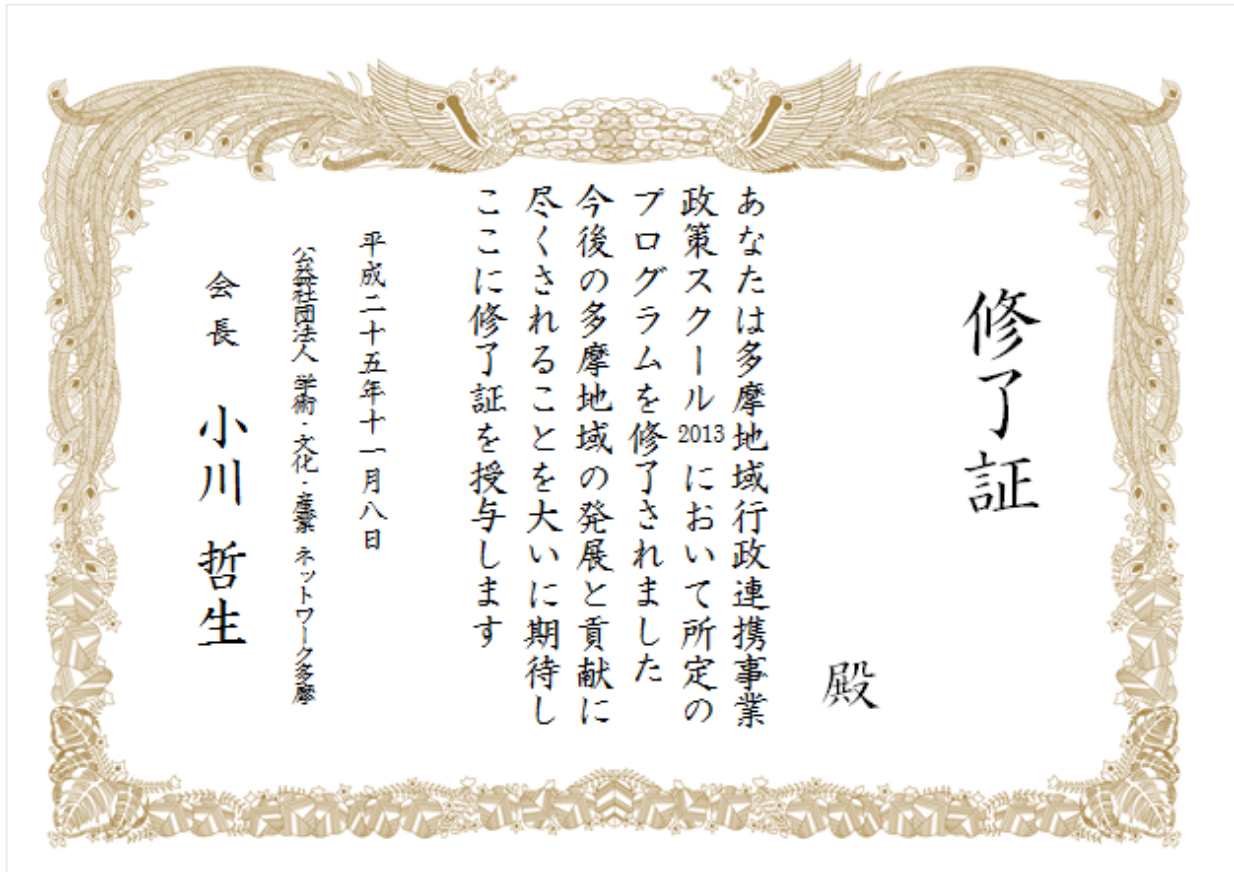 修了証
殿
あなたは多摩地域行政連携事業
政策スクール2013において所定の
プログラムを修了されました
今後の多摩地域の発展と貢献に
尽くされることを大いに期待し
ここに修了証を授与します
平成二十五年十一月八日
公益社団法人 学術・文化・産業 ネットワーク多摩
会長 小川 哲生